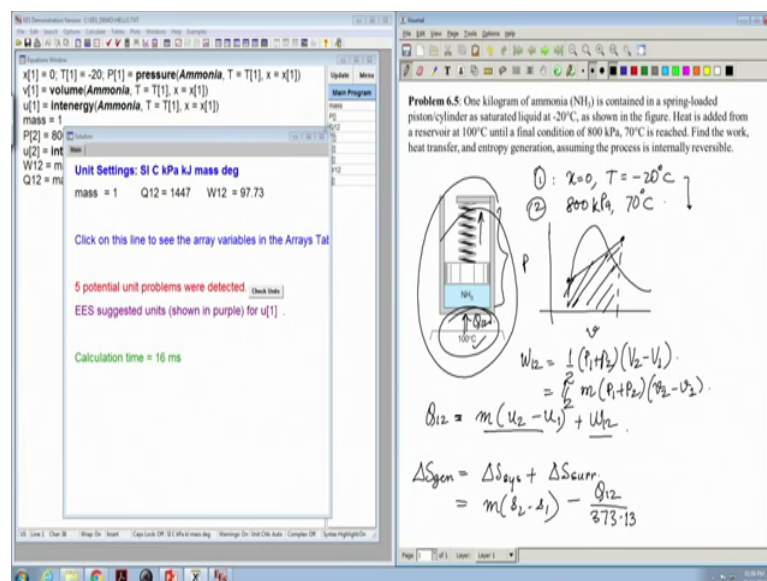 EES Demonstration Session: C:\EES_DEMO\HELLO.TXT
File Edit Search Options Calculate Tables Plots Windows Help Examples
Equations Window
x[1] = 0; T[1] = -20; P[1] = pressure(Ammonia, T = T[1], x = x[1])
v[1] = volume(Ammonia, T = T[1], x = x[1])
u[1] = intenergy(Ammonia, T = T[1], x = x[1])
mass = 1
P[2] = 80
u[2] = int
W12 = m
Q12 = ma
Update Menu
Main Program
mass
Solution
Main
Unit Settings: SI C kPa kJ mass deg
mass = 1 Q12 = 1447 W12 = 97.73
Click on this line to see the array variables in the Arrays Tab
5 potential unit problems were detected. Check Units
EES suggested units (shown in purple) for u[1] .
Calculation time = 16 ms
Line 1 Char 36 Wrap: On Insert Caps Lock: Off SI C kPa kJ mass deg Warnings: On Unit Chk: Auto Complex: Off Syntax Highlight: On
Xournal
File Edit View Page Tools Options Help
Problem 6.5: One kilogram of ammonia (NH₃) is contained in a spring-loaded
piston/cylinder as saturated liquid at -20°C, as shown in the figure. Heat is added from
a reservoir at 100°C until a final condition of 800 kPa, 70°C is reached. Find the work,
heat transfer, and entropy generation, assuming the process is internally reversible.
① : x=0, T = -20°C
② 800 kPa, 70°C.
P
NH₃
100°C
v
W₁₂ = 1/2 (P₁+P₂)(V₂-V₁).
= 1/2 m(P₁+P₂)(v₂-v₁).
Q₁₂ = m(u₂-u₁) + W₁₂.
ΔSgen = ΔSsys + ΔSsurr.
= m(s₂-s₁) - Q₁₂/373.13
Page 1 of 1 Layer: Layer 1